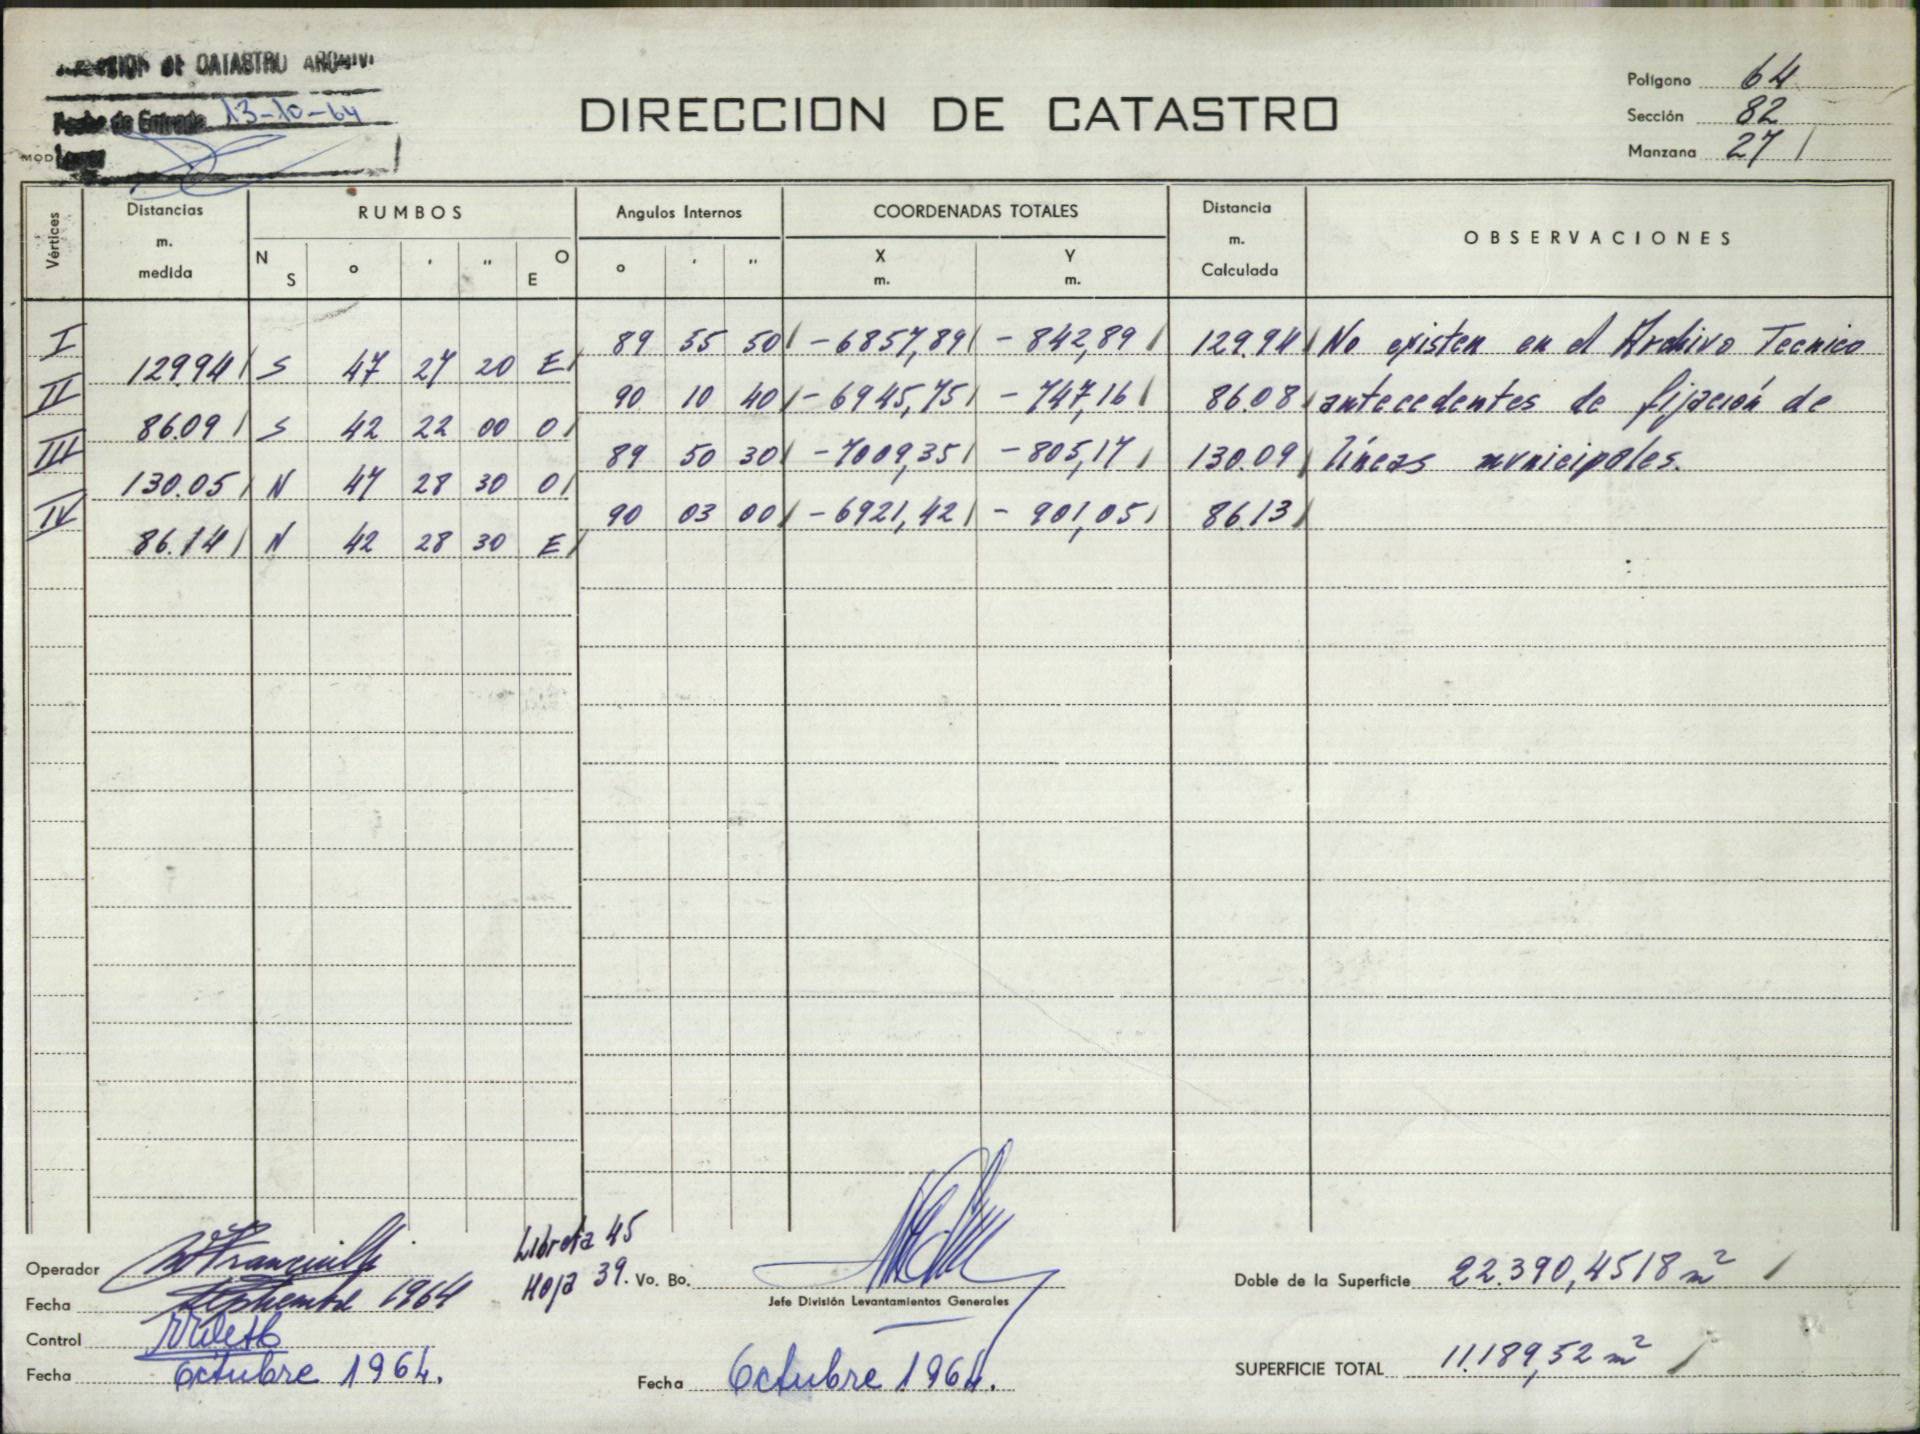 DE CATASTRO
Fecha de Entrada 13-10-64
MOD
DIRECCION DE CATASTRO
Polígono 64
Sección 82
Manzana 27
Vértices
Distancias m. medida
RUMBOS
N S ° ' " O E
Angulos Internos
° ' "
COORDENADAS TOTALES
X m. Y m.
Distancia m. Calculada
OBSERVACIONES
I 89 55 50 -6857,89 -842,89 129.94 No existen en el Archivo Tecnico
129.94 S 47 27 20 E
II 90 10 40 -6945,75 -747,16 86.08 antecedentes de fijación de
86.09 S 42 22 00 O
III 89 50 30 -7009,35 -805,17 130.09 líneas municipales.
130.05 N 47 28 30 O
IV 90 03 00 -6921,42 -901,05 86.13
86.14 N 42 28 30 E
Operador
Fecha Septiembre 1964
Control
Fecha Octubre 1964.
Libreta 45
Hoja 39.
Vo. Bo.
Jefe División Levantamientos Generales
Fecha Octubre 1964.
Doble de la Superficie 22.390,4518 m²
SUPERFICIE TOTAL 11.189,52 m²